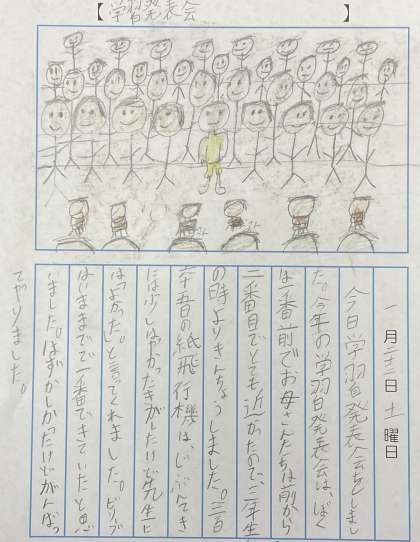 【学習発表会】
一月二十三日 土曜日
今日学習発表会をしまし
た。今年の学習発表会は、ぼく
は一番前でお母さんたちは前から
二番目でとても近かたので、二年生
の時よりきんちょうしました。三百
六十五の紙飛行機は、じぶんてき
には少しはやかったきがしたけど先生に
は「よかった。」と言ってくれました。ビリーブ
はいままでで一番できていたと思
いました。はずかしかったけどがんばっ
てやりました。